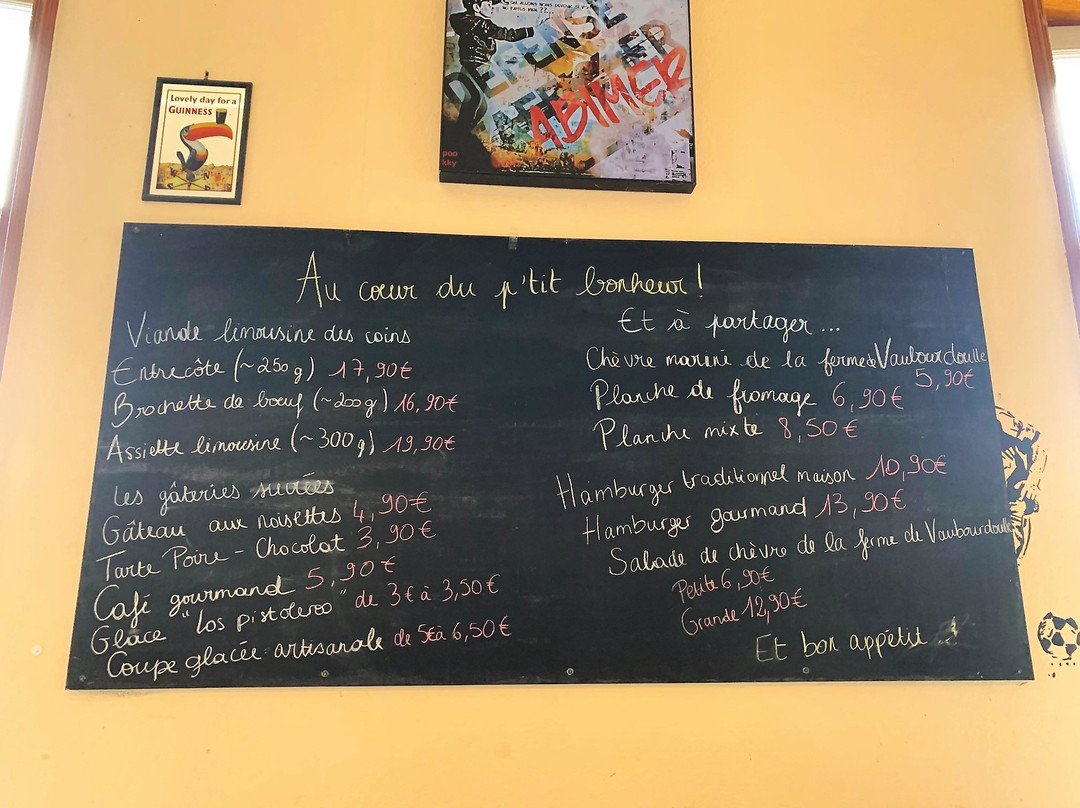 Lovely day for a
GUINNESS
DEFENSE
ABIMER
poo
kky
Au cœur du p'tit bonheur !
Viande limousine des coins
Entrecôte (~250g) 17,90€
Brochette de bœuf (~200g) 16,90€
Assiette limousine (~300g) 19,90€
Les gâteries sucrées
Gâteau aux noisettes 4,90€
Tarte Poire - Chocolat 3,90€
Café gourmand 5,90€
Glace "Los pistoleros" de 3€ à 3,50€
Coupe glacée artisanale de 5€ à 6,50€
Et à partager...
Chèvre mariné de la ferme de Vaubourdoulle
5,90€
Planche de fromage 6,90€
Planche mixte 8,50€
Hamburger traditionnel maison 10,90€
Hamburger gourmand 13,90€
Salade de chèvre de la ferme de Vaubourdoulle
Petite 6,90€
Grande 12,90€
Et bon appétit !